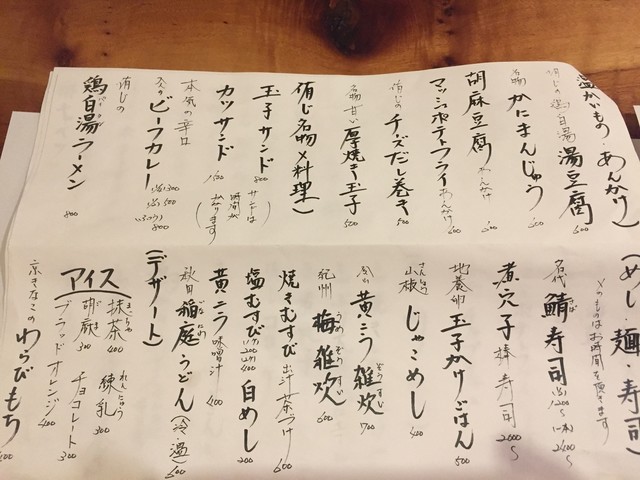 温かいもの・あんかけ)
侑じの鶏白湯湯豆腐 600
名物 かにまんじゅう
胡麻豆腐 あんかけ
マッシュポテトフライ あんかけ 600
侑じの チーズだし巻き 500
名物 甘い 厚焼き玉子 500
侑じ名物×料理)
玉子サンド 800
カツサンド 1500
(サンドは
時間が
かかります)
本気の辛口
大人の ビーフカレー
(小) 800
侑じの
鶏白湯ラーメン 800
(めし・麺・寿司)
お時間を頂きます
名代 鯖寿司
煮穴子 棒寿司 2000〜
地養卵 玉子かけごはん 500
山椒 じゃこめし 400
黄ニラ雑炊 700
紀州 梅雑炊 600
焼きむすび 出汁茶づけ 600
塩むすび 白めし 200
黄ニラ 味噌汁 400
秋田 稲庭うどん (冷・温) 600
(デザート)
アイス
抹茶 400 練乳 300
胡麻 300 チョコレート 300
ブラッドオレンジ 400
京きなこの わらびもち